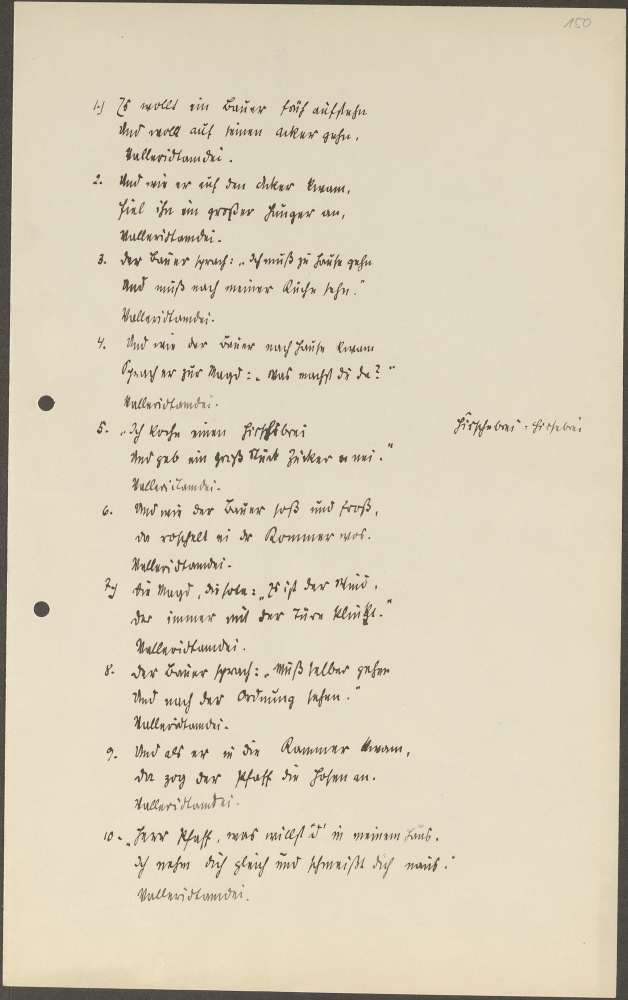 150
1.) Es wollt ein Bauer früh aufstehn
Und wollt auf seinen Acker gehn.
Valleridtamdei.
2. Und wie er auf den Acker kwam,
Fiel ihn ein großer Hunger an,
Valleridtamdei.
3. Der Bauer sprach: „Ich muß zu Hause gehn
Und muß nach meiner Küche sehn."
Valleridtamdei.
4. Und wie der Bauer nach Hause kwam
Sprach er zur Magd: „Was machst du da?"
Valleridtamdei.
5. „Ich koche einen Hirschbrei Hirschebrei = Hirsebrei
Und geb ein groß Stück Zucker nei."
Valleridtamdei.
6. Und wie der Bauer saß und fraß,
da roschelt ei dr Kommer wos.
Valleridtamdei.
7.) Die Magd, die sote: „Es ist der Wind,
der immer mit der Türe klinkt."
Valleridtamdei.
8. Der Bauer sprach: „Muß selber gehen
Und nach der Ordnung sehen."
Valleridtamdei.
9. Und als er in die Kammer kwam,
da zog der Pfaff die Hosen an.
Valleridtamdei.
10. „Herr Pfaff, was willst 'd' in meinem Haus.
Ich nehm dich gleich und schmeißt dich naus."
Valleridtamdei.